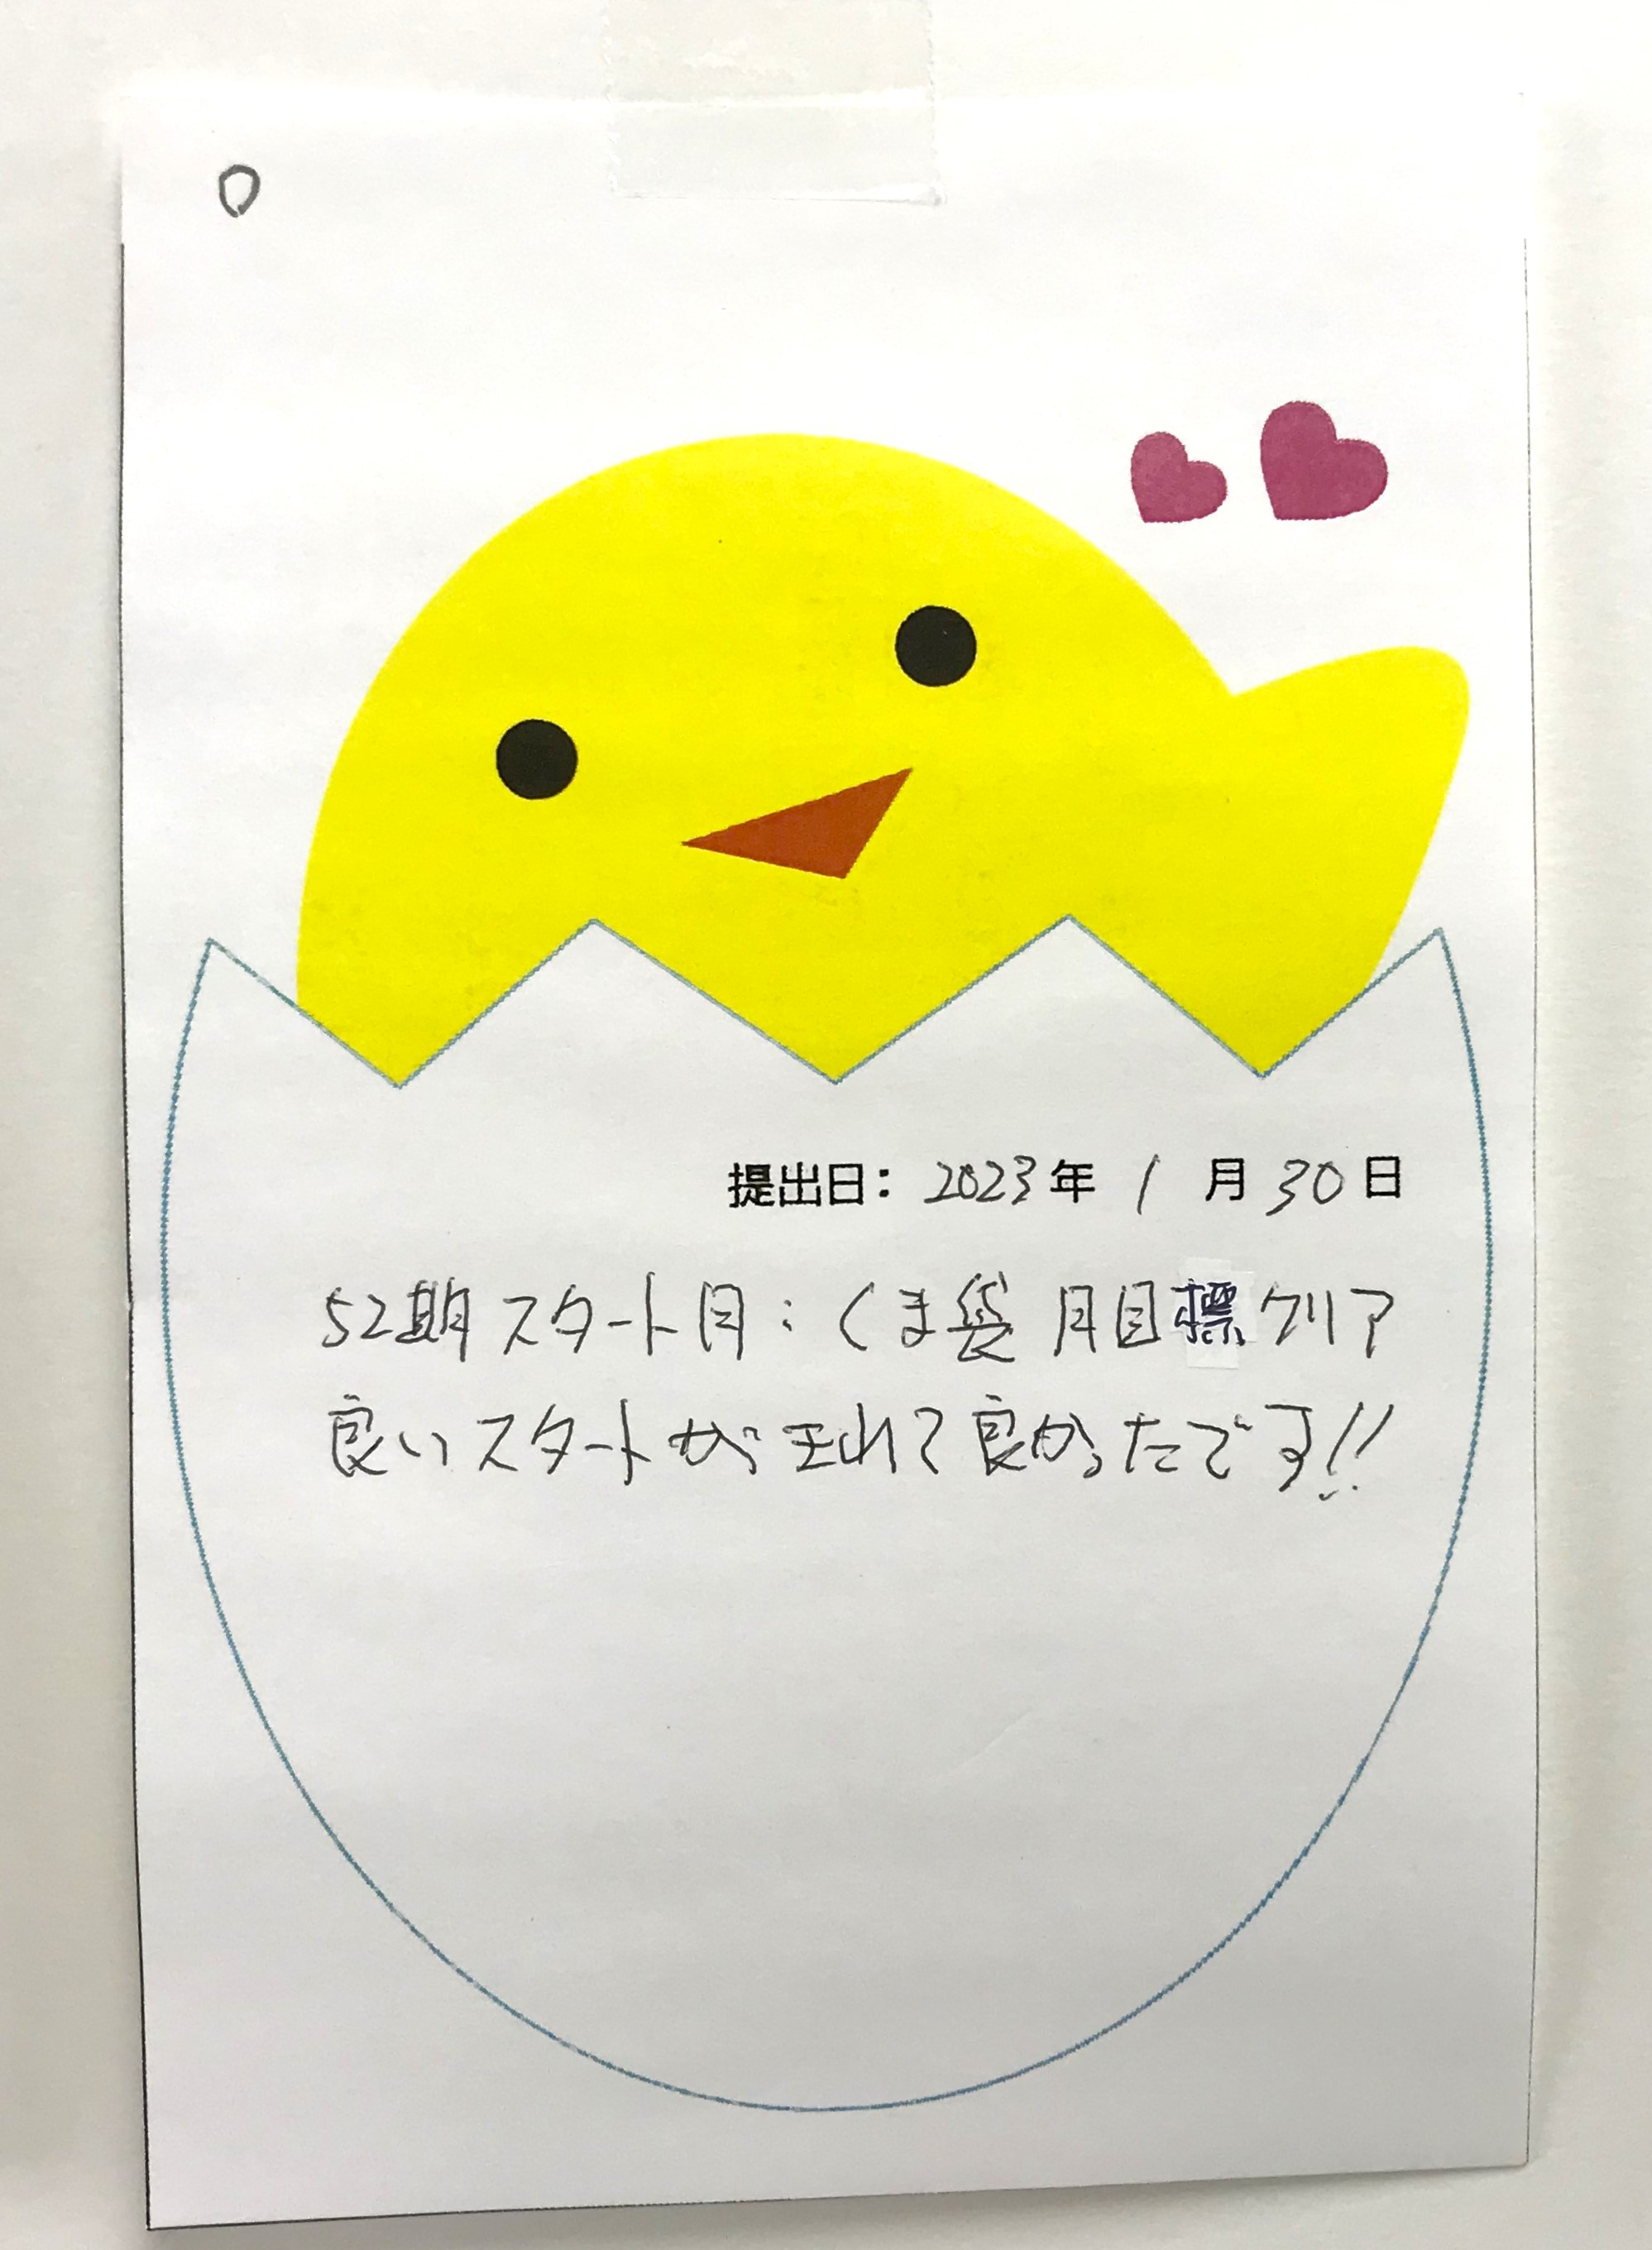 提出日： 2023年 1月 30日
52期スタート月：くま袋 月目標クリア
良いスタートがきれて良かったです!!